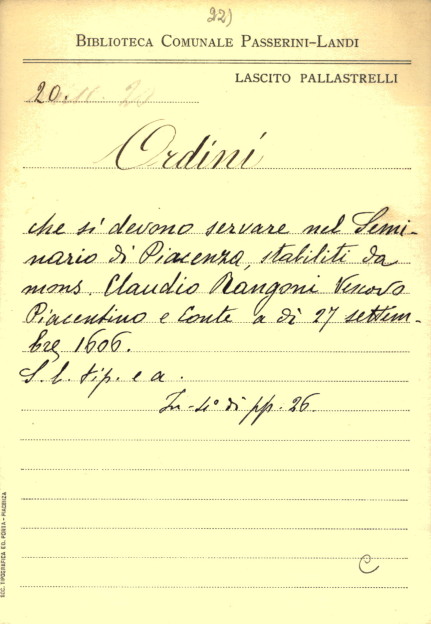 22)
BIBLIOTECA COMUNALE PASSERINI-LANDI
LASCITO PALLASTRELLI
20.
Ordini
che si devono servare nel Semi-
nario di Piacenza, stabiliti da
mons. Claudio Rangoni Vescovo
Piacentino e Conte a dì 27 settem-
bre 1606.
S. l. tip. e a.
In-4° di pp. 26.
C
SOC. TIPOGRAFICA ED. PORTA - PIACENZA